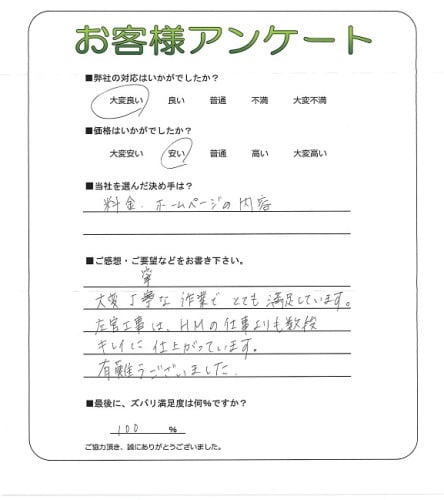 お客様アンケート
■弊社の対応はいかがでしたか?
大変良い 良い 普通 不満 大変不満
■価格はいかがでしたか?
大変安い 安い 普通 高い 大変高い
■当社を選んだ決め手は?
料金・ホームページの内容
■ご感想・ご要望などをお書き下さい。
寧
大変丁寧な作業でとても満足しています。
左官工事は、HMの仕事よりも数段
キレイに仕上がっています。
有難うございました。
■最後に、ズバリ満足度は何%ですか?
100 %
ご協力頂き、誠にありがとうございました。